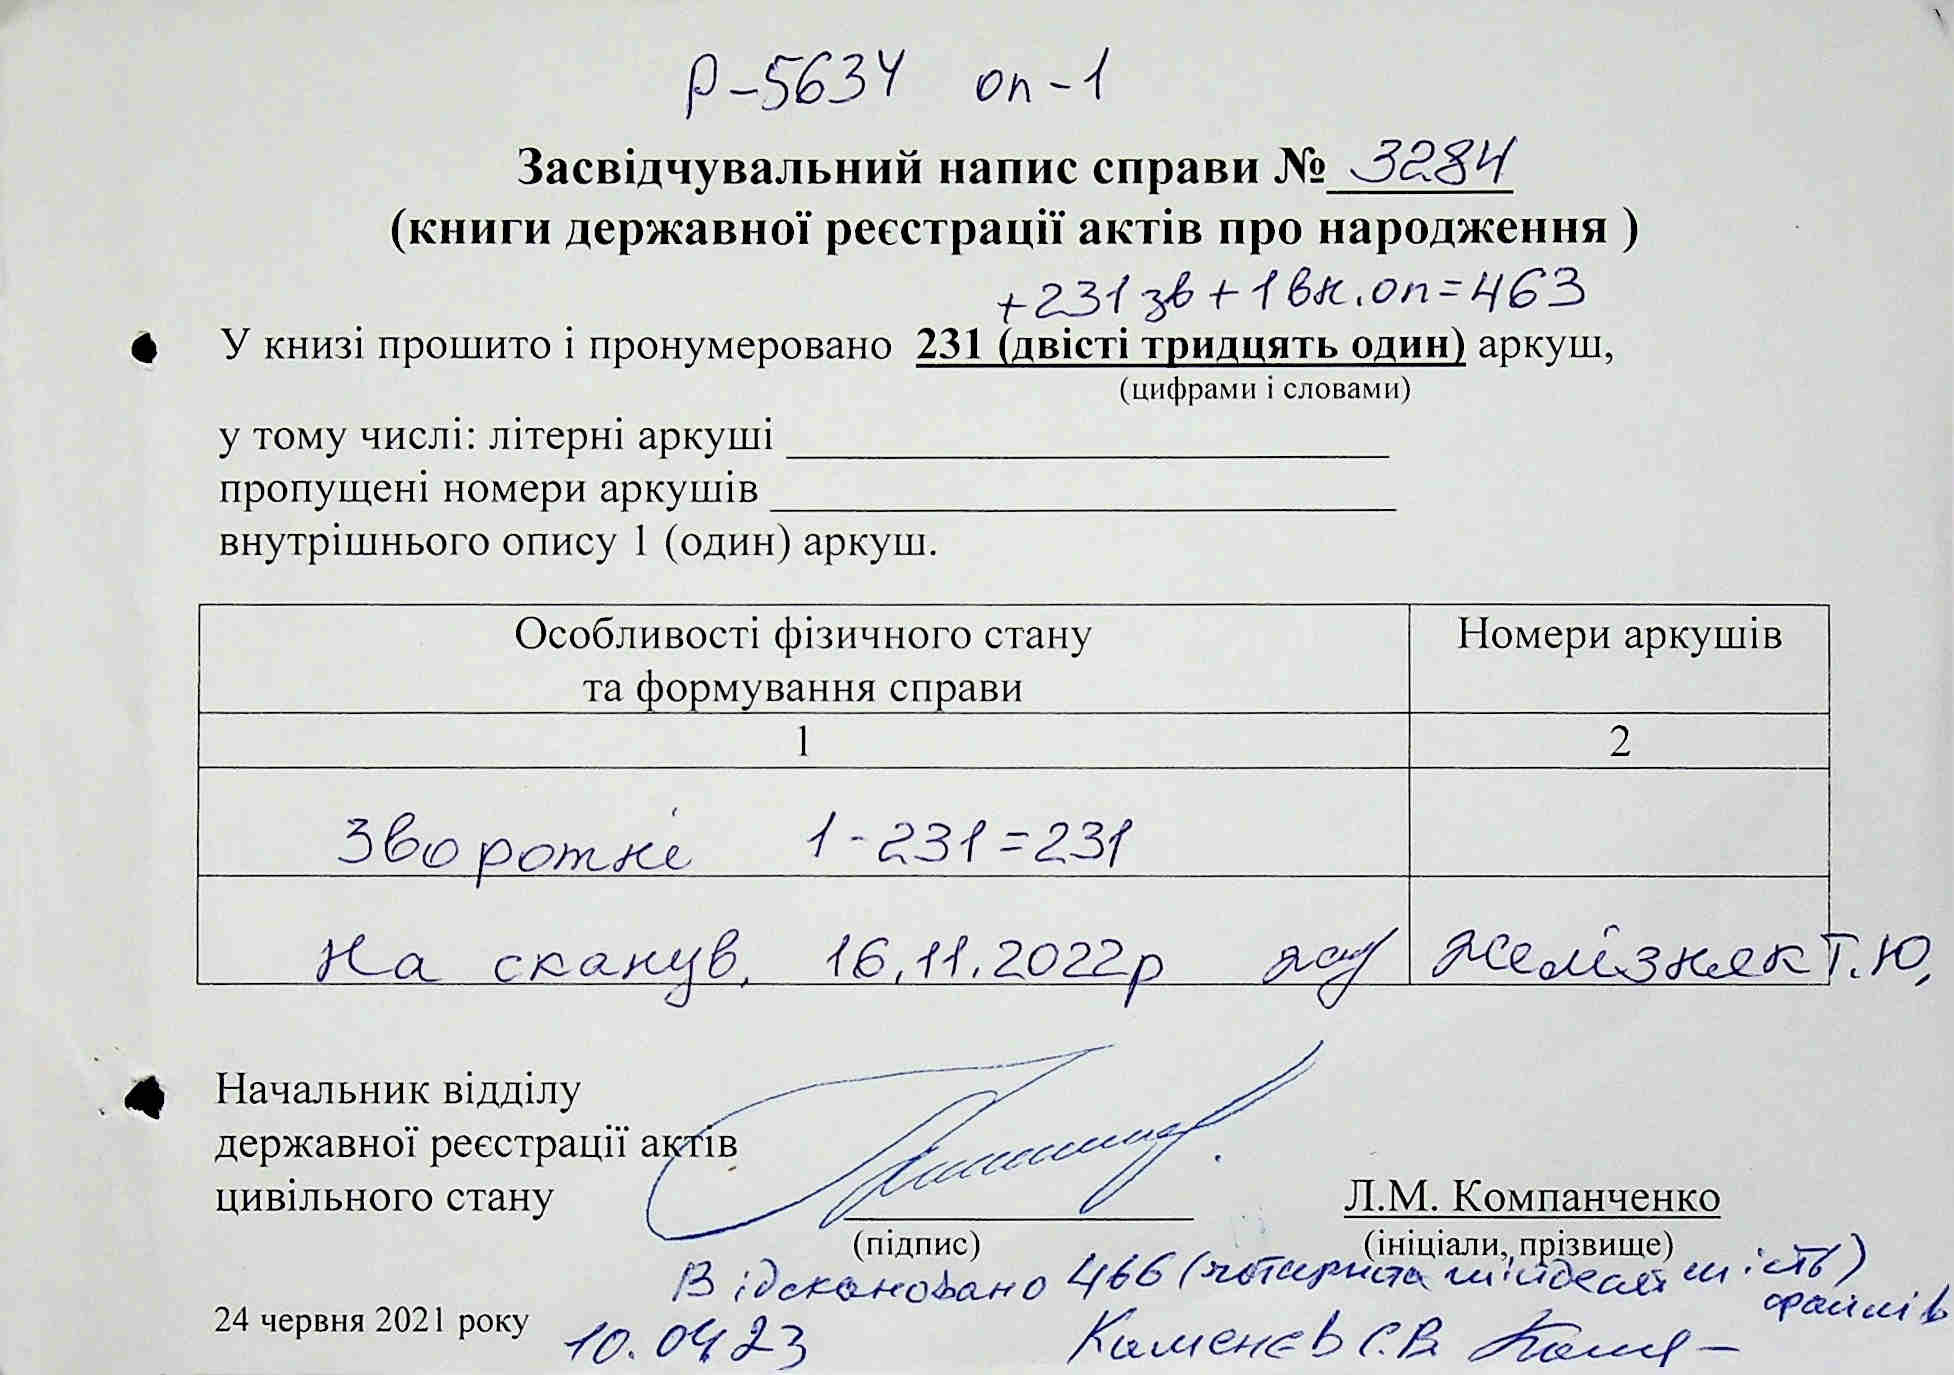 Р-5634 оп-1
Засвідчувальний напис справи № 3284
(книги державної реєстрації актів про народження )
+231 зв + 1 вн.оп=463
У книзі прошито і пронумеровано 231 (двісті тридцять один) аркуш,
(цифрами і словами)
у тому числі: літерні аркуші
пропущені номери аркушів
внутрішнього опису 1 (один) аркуш.
Особливості фізичного стану та формування справи
Номери аркушів
1 2
Зворотні 1-231=231
На сканув. 16.11.2022р Желізняк Т.Ю.
Начальник відділу
державної реєстрації актів
цивільного стану
Л.М. Компанченко
(підпис) (ініціали, прізвище)
Відскановано 466 (чотириста шістдесят шість) файлів
24 червня 2021 року
10.04.23 Каменєв С.В.